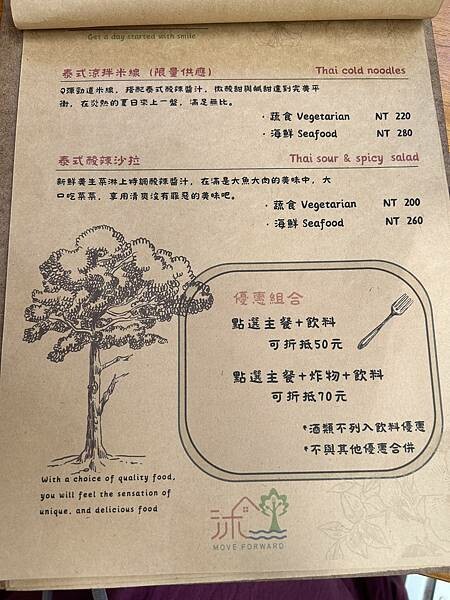 Get a day started with smile
泰式涼拌米線 (限量供應) Thai cold noodles
Q彈勁道米線，搭配泰式酸辣醬汁，微酸甜與鹹甜達到完美平
衡，在炎熱的夏日來上一盤，滿足無比。
・蔬食 Vegetarian NT 220
・海鮮 Seafood NT 280
泰式酸辣沙拉 Thai sour & spicy salad
新鮮養生菜淋上特調酸辣醬汁，在滿是大魚大肉的美味中，大
口吃菜菜，享用清爽沒有罪惡的美味吧。
・蔬食 Vegetarian NT 200
・海鮮 Seafood NT 260
優惠組合
點選主餐+飲料
可折抵50元
點選主餐+炸物+飲料
可折抵70元
*酒類不列入飲料優惠
*不與其他優惠合併
With a choice of quality food,
you will feel the sensation of
unique, and delicious food
沐
MOVE FORWARD